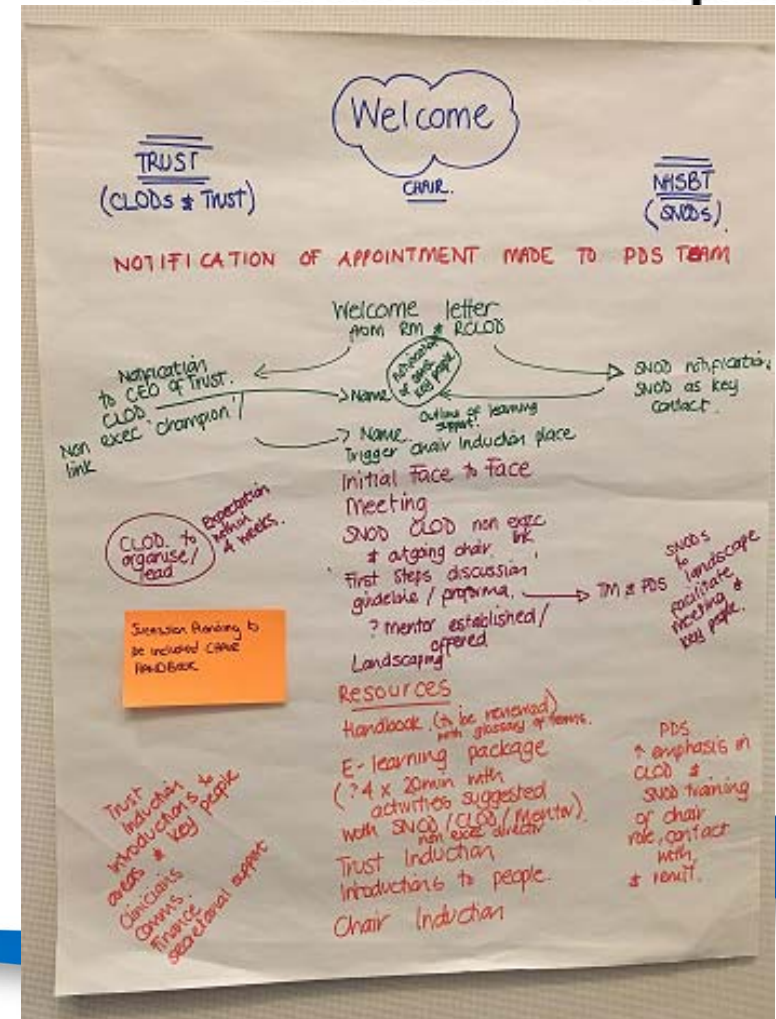 Welcome
CHAIR.
TRUST
(CLODs & Trust)
NHSBT
(SNODs)
NOTIFICATION OF APPOINTMENT MADE TO PDS TEAM
Welcome letter
from RM & RCLOD
Notification
to CEO of Trust.
CLOD
Non exec 'champion'/
link
Name
Notification
of other
key people
SNOD notification,
SNOD as key
contact.
Outline of learning
support.
Name
Trigger chair Induction place
Initial Face to Face
Meeting
SNOD CLOD non exec
link
& outgoing chair.
'First Steps discussion'
guideline / proforma.
TM & PDS
? mentor established/
offered
Landscaping
CLOD to
organise/
lead
Expectation
within
4 weeks.
SNODs
to
landscape
facilitate
meeting &
key people.
Succession Planning to
be included CHAIR
HANDBOOK
Resources
Handbook (to be reviewed)
with glossary of terms.
E-learning package
(? 4 x 20min with
activities suggested
with SNOD / CLOD / Mentor).
non exec director
Trust Induction
Introductions to people.
Chair Induction
Trust
Induction
introductions to
areas & key people
Clinicians
Comms.
Finance
secretarial support
PDS
↑ emphasis in
CLOD &
SNOD training
of chair
role, contact
with,
& remit.